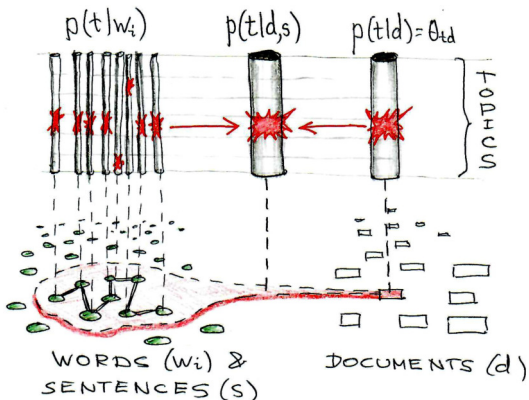 p(t|wi)
p(t|d,s)
p(t|d)=θtd
TOPICS
WORDS (wi) &
SENTENCES (S)
DOCUMENTS (d)